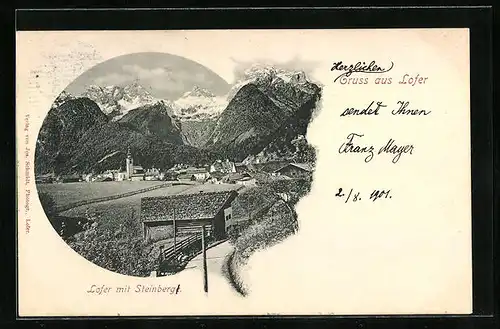 Herzlichen
Gruss aus Lofer
sendet Ihnen
Franz Mayer
2./8. 1901.
Lofer mit Steinberge.
Verlag von Jos. Schmidt, Photogr., Lofer.